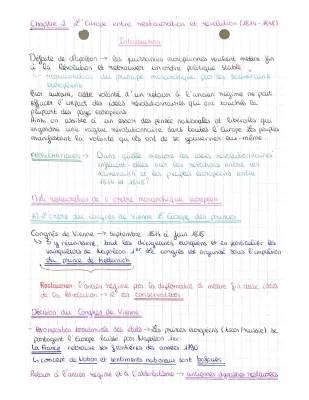 Chapitre 2: L'Europe entre restauration et révolution (1814-1848)
Introduction
Défaite de Napoléon → les puissances européennes veulent mettre fin
à la Révolution et retrouver un ordre politique stable
↳ réaffirmation du principe monarchique par les souverains
européens
Pour autant, cette volonté d'un retour à l'ancien régime ne peut
effacer l'impact des idées révolutionnaires qui ont touché la
plupart des pays européens
Ainsi on assiste à un essor des pensées nationales et libérales qui
engendre une vague révolutionnaire dans toute l'Europe. Les peuples
manifestent la volonté qu'ils ont de se gouverner eux-même
PROBLÉMATIQUE → Dans quelle mesure les idées révolutionnaires
influent-elles sur les relations entre les
souverains et les peuples européens entre
1814 et 1848?
I) La restauration de l'ordre monarchique européen
A) L'ordre du congrès de Vienne: L'Europe des princes
Congrès de Vienne → septembre 1814 à juin 1815
↳ s'y réunissent, tout les dirigeants européens et en particulier les
vainqueurs de Napoléon 1er. Le congrès est organisé sous l'impulsion
du prince de Metternich
Restaurer l'ancien régime par la diplomatie et mettre fin aux idées
de la Révolution → il est conservateur
Décision du Congrès de Vienne:
- Recomposition territoriale des états → Les princes européens (tsar/russie) se
partagent l'Europe laissé par Napoléon 1er
La France retrouve ses frontières des années 1790
Le concept de Nation et sentiments nationaux sont bafoués
Retour à l'ancien régime et à l'absolutisme → anciennes dynasties restaurées